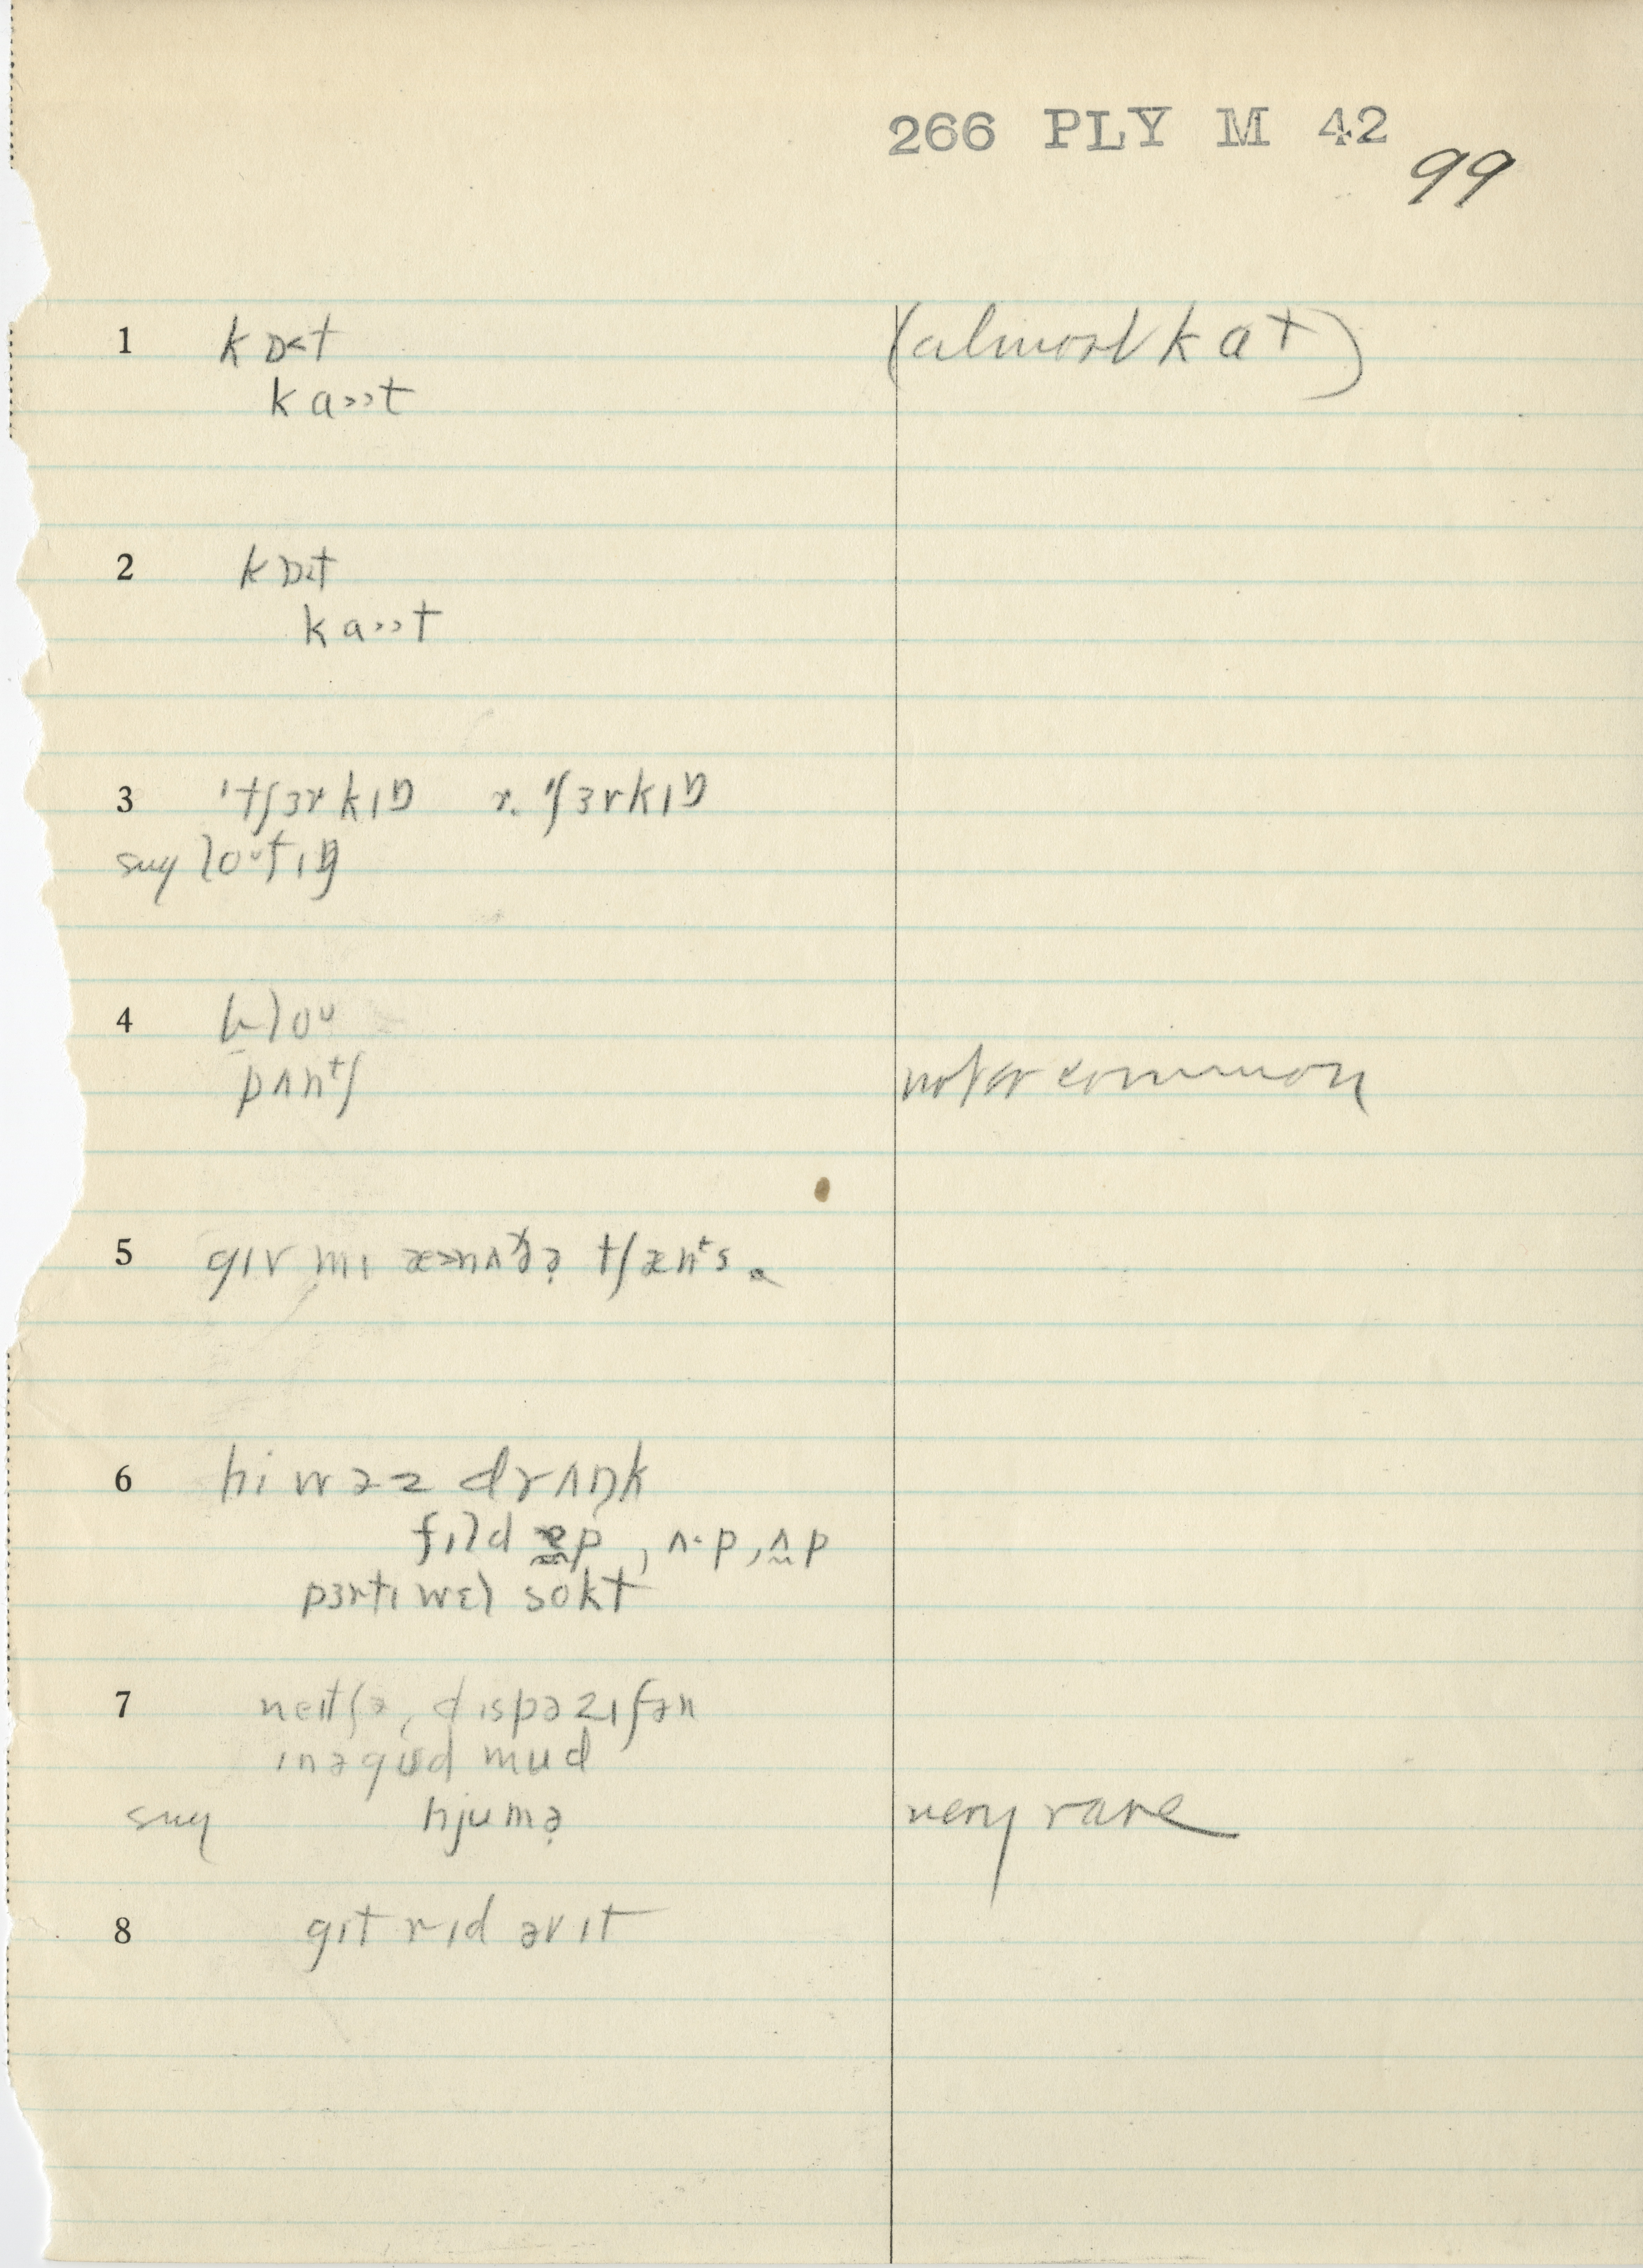 266 PLY M 42
99
1 kɒ<t (almost kat)
ka>>t
2 kɒ<t
ka>>t
3 'tʃɜrkɪŋ r. 'ʃɜrkɪŋ
sug loᵘtɪŋ
4 bloᵘ
pʌnᵗʃ not or common
5 gɪv mɪ æ>nʌðə̣ tʃænᵗs
6 hi wəz drʌŋk
fɪld əp, ʌ·p, ʌp
pɜrtɪ wɛl sokt
7 neɪtʃə, dɪspəzɪʃən
ɪnəgʊd mud
sug hjumə̣ very rare
8 gɪt rɪd əv ɪt